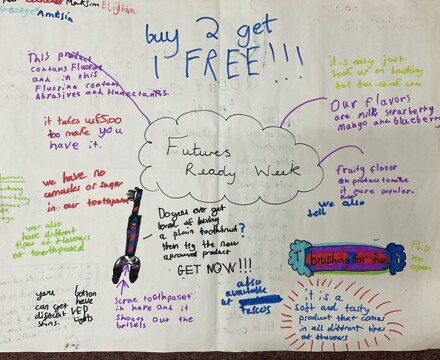 Maksim Elighia
George Amelia
buy 2 get
1 FREE!!!
This product
contans Fluorine
and in this
Fluorine contans
Abrasives and Humectants.
it takes
to make you
have it.
we have no
or sugar
in our toothpaste
we also
have different
tipes of flavours
of toothpasted
Futures
Ready Week
it is easy just
look us up on
Our flavors
are milk, strarberry
mango and blueberry
fruity flavor
on products make
it more popular.
we also
sell
Do you ever get
bored of having
a plain toothbrush?
then try the new
aproved product
GET NOW!!!
also
available
at tescos
T brushing for fun
Flip
to open
it is a
soft and tasty
product that comes
in all different tipes
of flavours
you
can get
different
skins.
button
have
LED
lights
Scrae toothpaset
in here and it
shoots out the
brisels